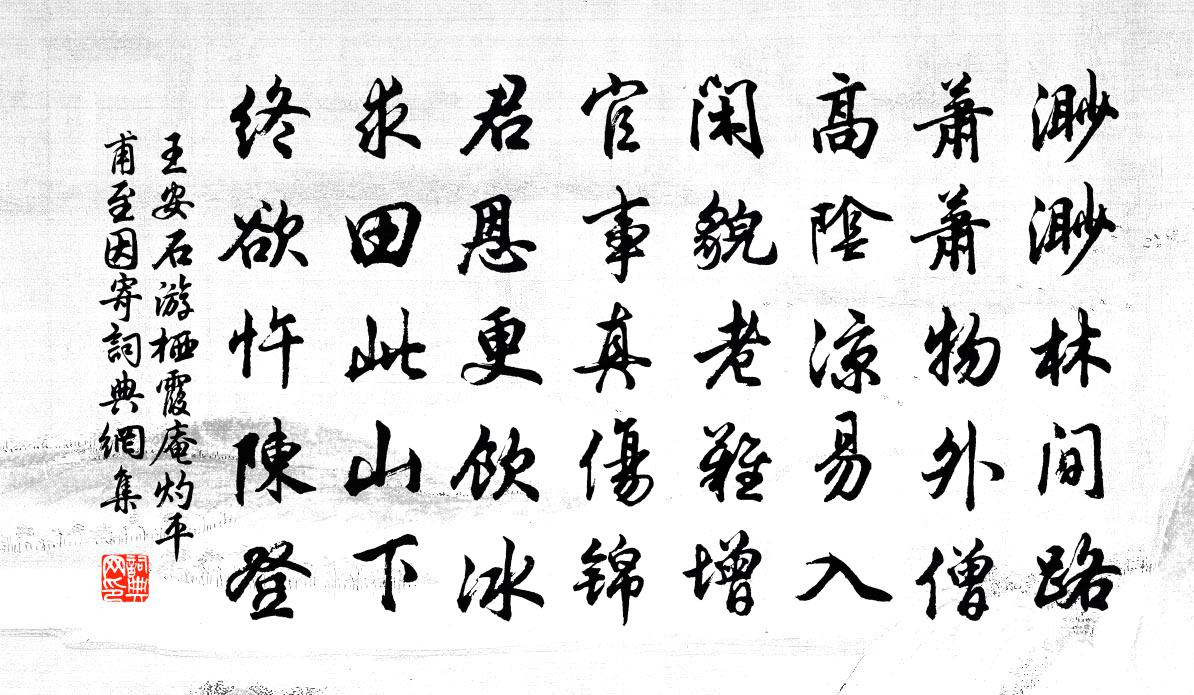 渺渺林间路
萧萧物外僧
高陰涼易入
閑貌老難增
官事真傷锦
君恩更飲冰
求田此山下
终欲忤陳登
王安石游栖霞庵灼平
甫至因寄詞典網集
詞典